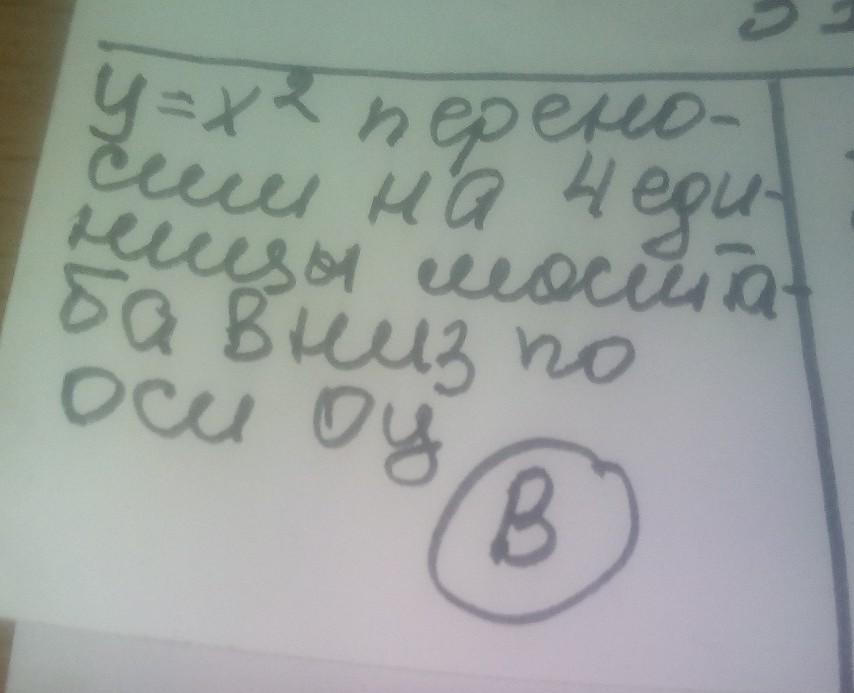 y=x² перено-
сим на 4 еди-
ницы масшта-
ба вниз по
оси оу
В